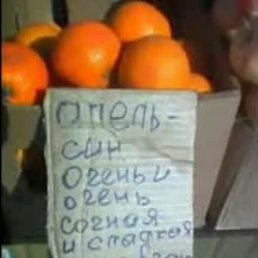 Апель-
син
Очень и
очень
сочная
и сладкая